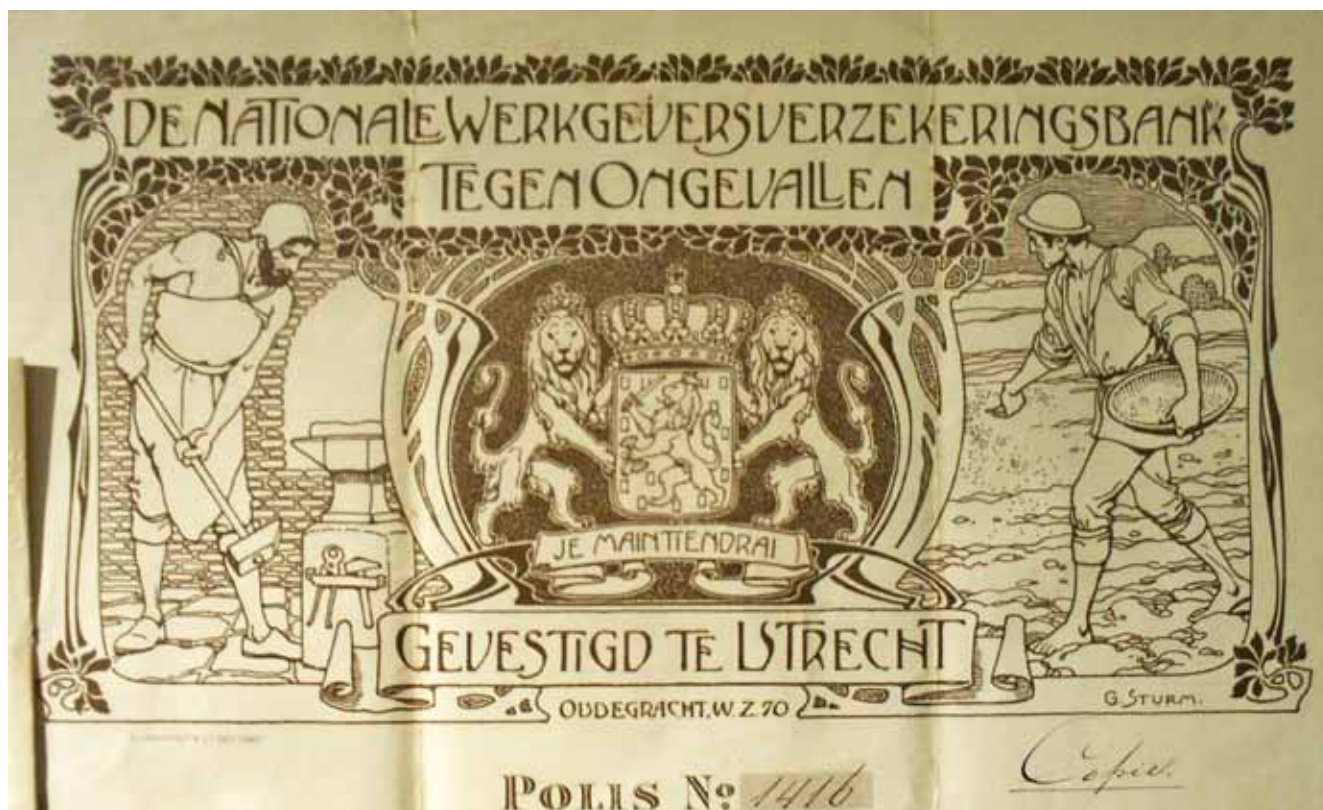 DE NATIONALE WERKGEVERSVERZEKERINGSBANK
TEGEN ONGEVALLEN
JE MAINTIENDRAI
GEVESTIGD TE UTRECHT
OUDEGRACHT. W. Z. 70
G. STURM.
Copie.
POLIS No 1416